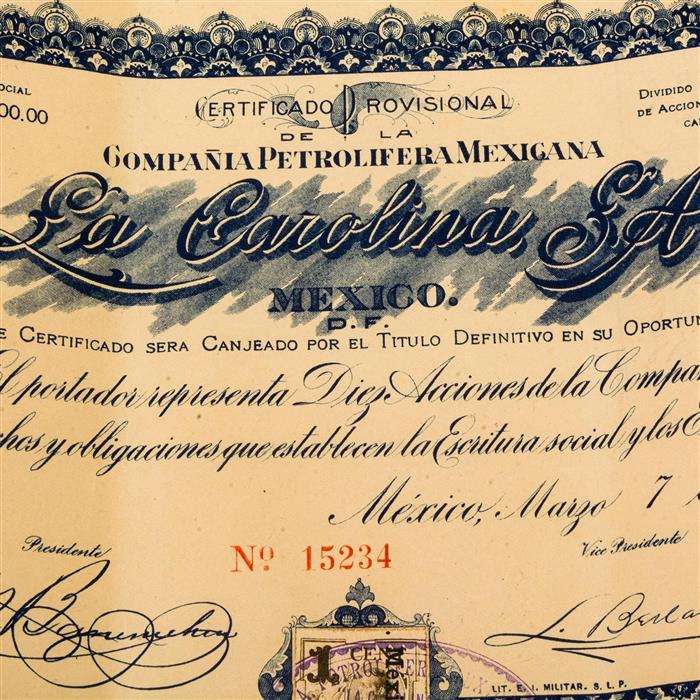 OCIAL
00.00
CERTIFICADO PROVISIONAL
DIVIDIDO
DE ACCION
DE LA
COMPAÑIA PETROLIFERA MEXICANA
La Carolina, S.A
MEXICO.
D.F.
E CERTIFICADO SERA CANJEADO POR EL TITULO DEFINITIVO EN SU OPORTUN
El portador representa Diez Acciones de la Compa
chos y obligaciones que establecen la Escritura social y los E
México, Marzo 7
Presidente
Nº 15234
Vice Presidente
1
CEN
Méx
LIT. E. I. MILITAR. S. L. P.